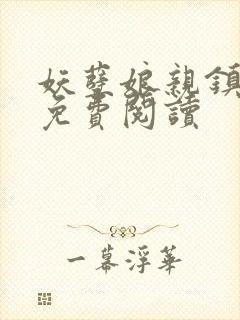 妖孽娘親鎮
免費閱讀
一幕浮華